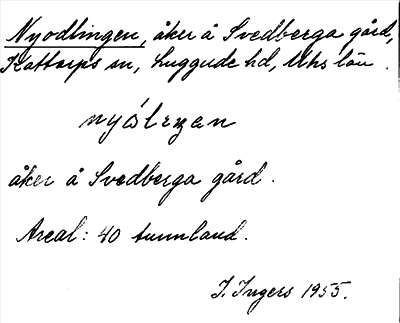 Nyodlingen, åker å Svedberga gård,
Kattarps sn, Luggude hd, Mhs län.
åker å Svedberga gård.
Areal: 40 tunnland.
I. Ingers 1955.